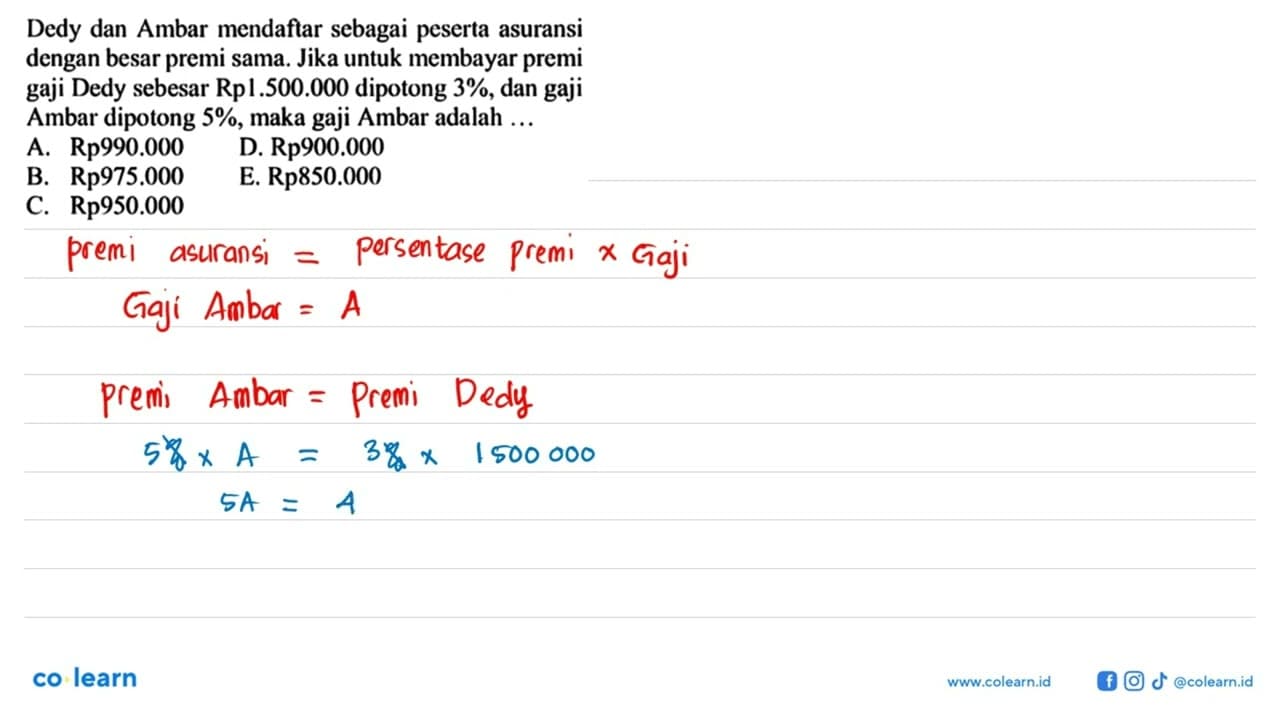 Dedy dan Ambar mendaftar sebagai peserta asuransi
dengan besar premi sama. Jika untuk membayar premi
gaji Dedy sebesar Rp1.500.000 dipotong 3%, dan gaji
Ambar dipotong 5%, maka gaji Ambar adalah ...
A. Rp990.000 D. Rp900.000
B. Rp975.000 E. Rp850.000
C. Rp950.000
premi asuransi = persentase premi x Gaji
Gaji Ambar = A
premi Ambar = Premi Dedy
5% x A = 3% x 1500 000
5A = 4
co learn
www.colearn.id @colearn.id